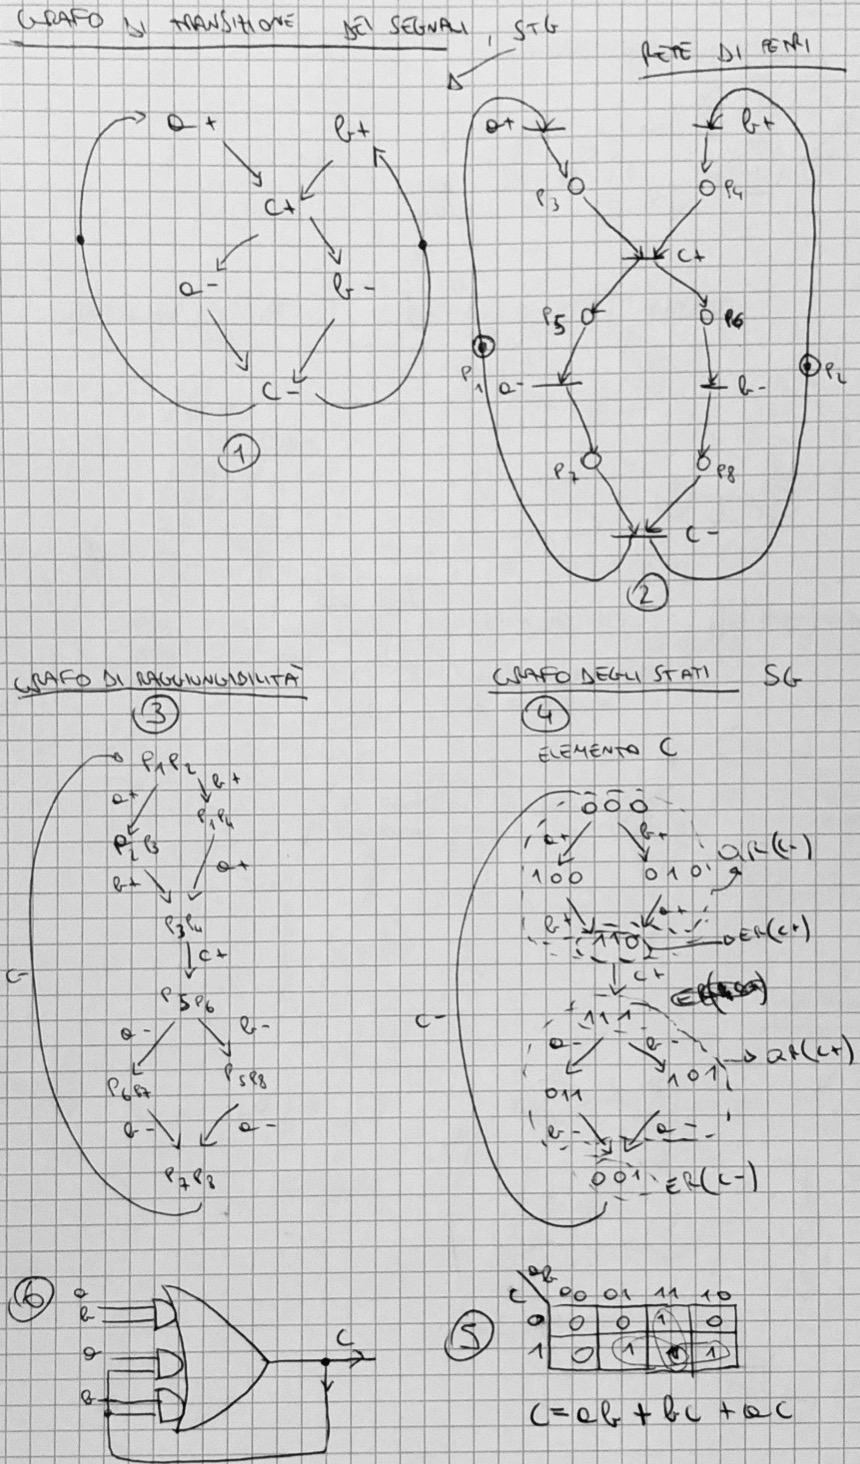 GRAFO DI TRANSIZIONE DEI SEGNALI, STG
RETE DI PETRI
a+ b+
c+
a- b-
c-
1
a+ b+
P3 P4
c+
P5 P6
P1 a- b- P2
P7 P8
c-
2
GRAFO DI RAGGIUNGIBILITÀ
3
P1P2
a+ b+
P2P3 P1P4
b+ a+
P3P4
c+
c-
P5P6
a- b-
P6P7 P5P8
b- a-
P7P8
GRAFO DEGLI STATI SG
4
ELEMENTO C
000
a+ b+
100 010 QR(c-)
b+ a+
110 ER(c+)
c+
c-
111
a- b-
011 101 QR(c+)
b- a-
001 ER(c-)
6
a
b
a
b
C
5
ab
c 00 01 11 10
0 0 0 1 0
1 0 1 1 1
C=ab+bc+ac